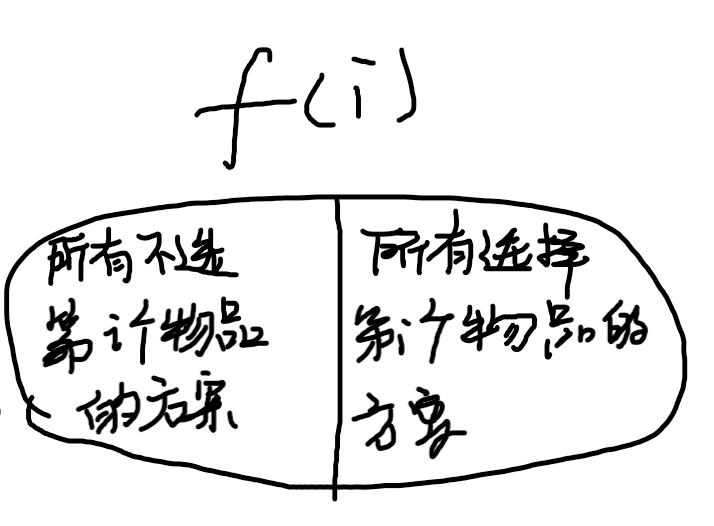 f(i)
所有不选
第i个物品
的方案
所有选择
第i个物品的
方案